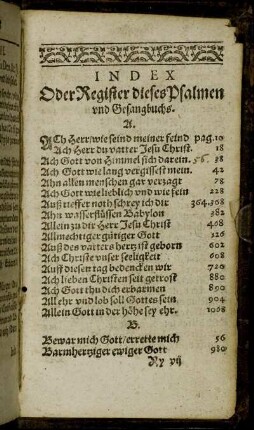 INDEX
Oder Register dieses Psalmen
vnd Gesangbuchs.
A.
ACh Herr/wie seind meiner feind pag.10
Ach Herr du vatter Jesu Christ. 18
Ach Gott von Himmel sich darein. 56. 38
Ach Gott wie lang vergissest mein. 42
An allen menschen gar verzagt 78
Ach Gott wie lieblich vnd wie fein 228
Auß tieffer noth schrey ich dir 364.368
An wasserflüssen Babylon 382
Allein zu dir Herr Jesu Christ 468
Allmechtiger gütiger Gott 126
Auß des vatters hertz ist geborn 602
Ach Christe vnser seeligkeit 608
Auff diesen tag bedencken wir 720
Ach lieben Christen seit getrost 880
Ach Gott thu dich erbarmen 890
All ehr vnd lob soll Gottes sein 904
Allein Gott in der höhe sey ehr. 1068
B.
Bewar mich Gott/errette mich 56
Barmhertziger ewiger Gott 980
vij